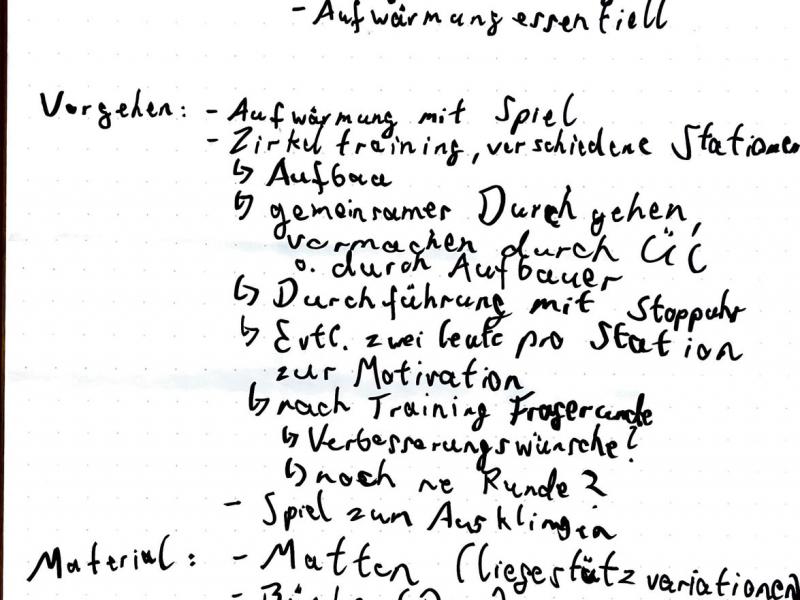 - Aufwärmung essentiell
Vorgehen: - Aufwärmung mit Spiel
- Zirkeltraining, verschiedene Stationen
↳ Aufbau
↳ gemeinsamer Durchgehen,
vormachen durch ÜL
o. durch Aufbauer
↳ Durchführung mit Stoppuhr
↳ Evtl. zwei Leute pro Station
zur Motivation
↳ nach Training Fragerunde
↳ Verbesserungswünsche?
↳ noch ne Runde?
- Spiel zum Ausklingen
Material: - Matten (Liegestützvariationen)